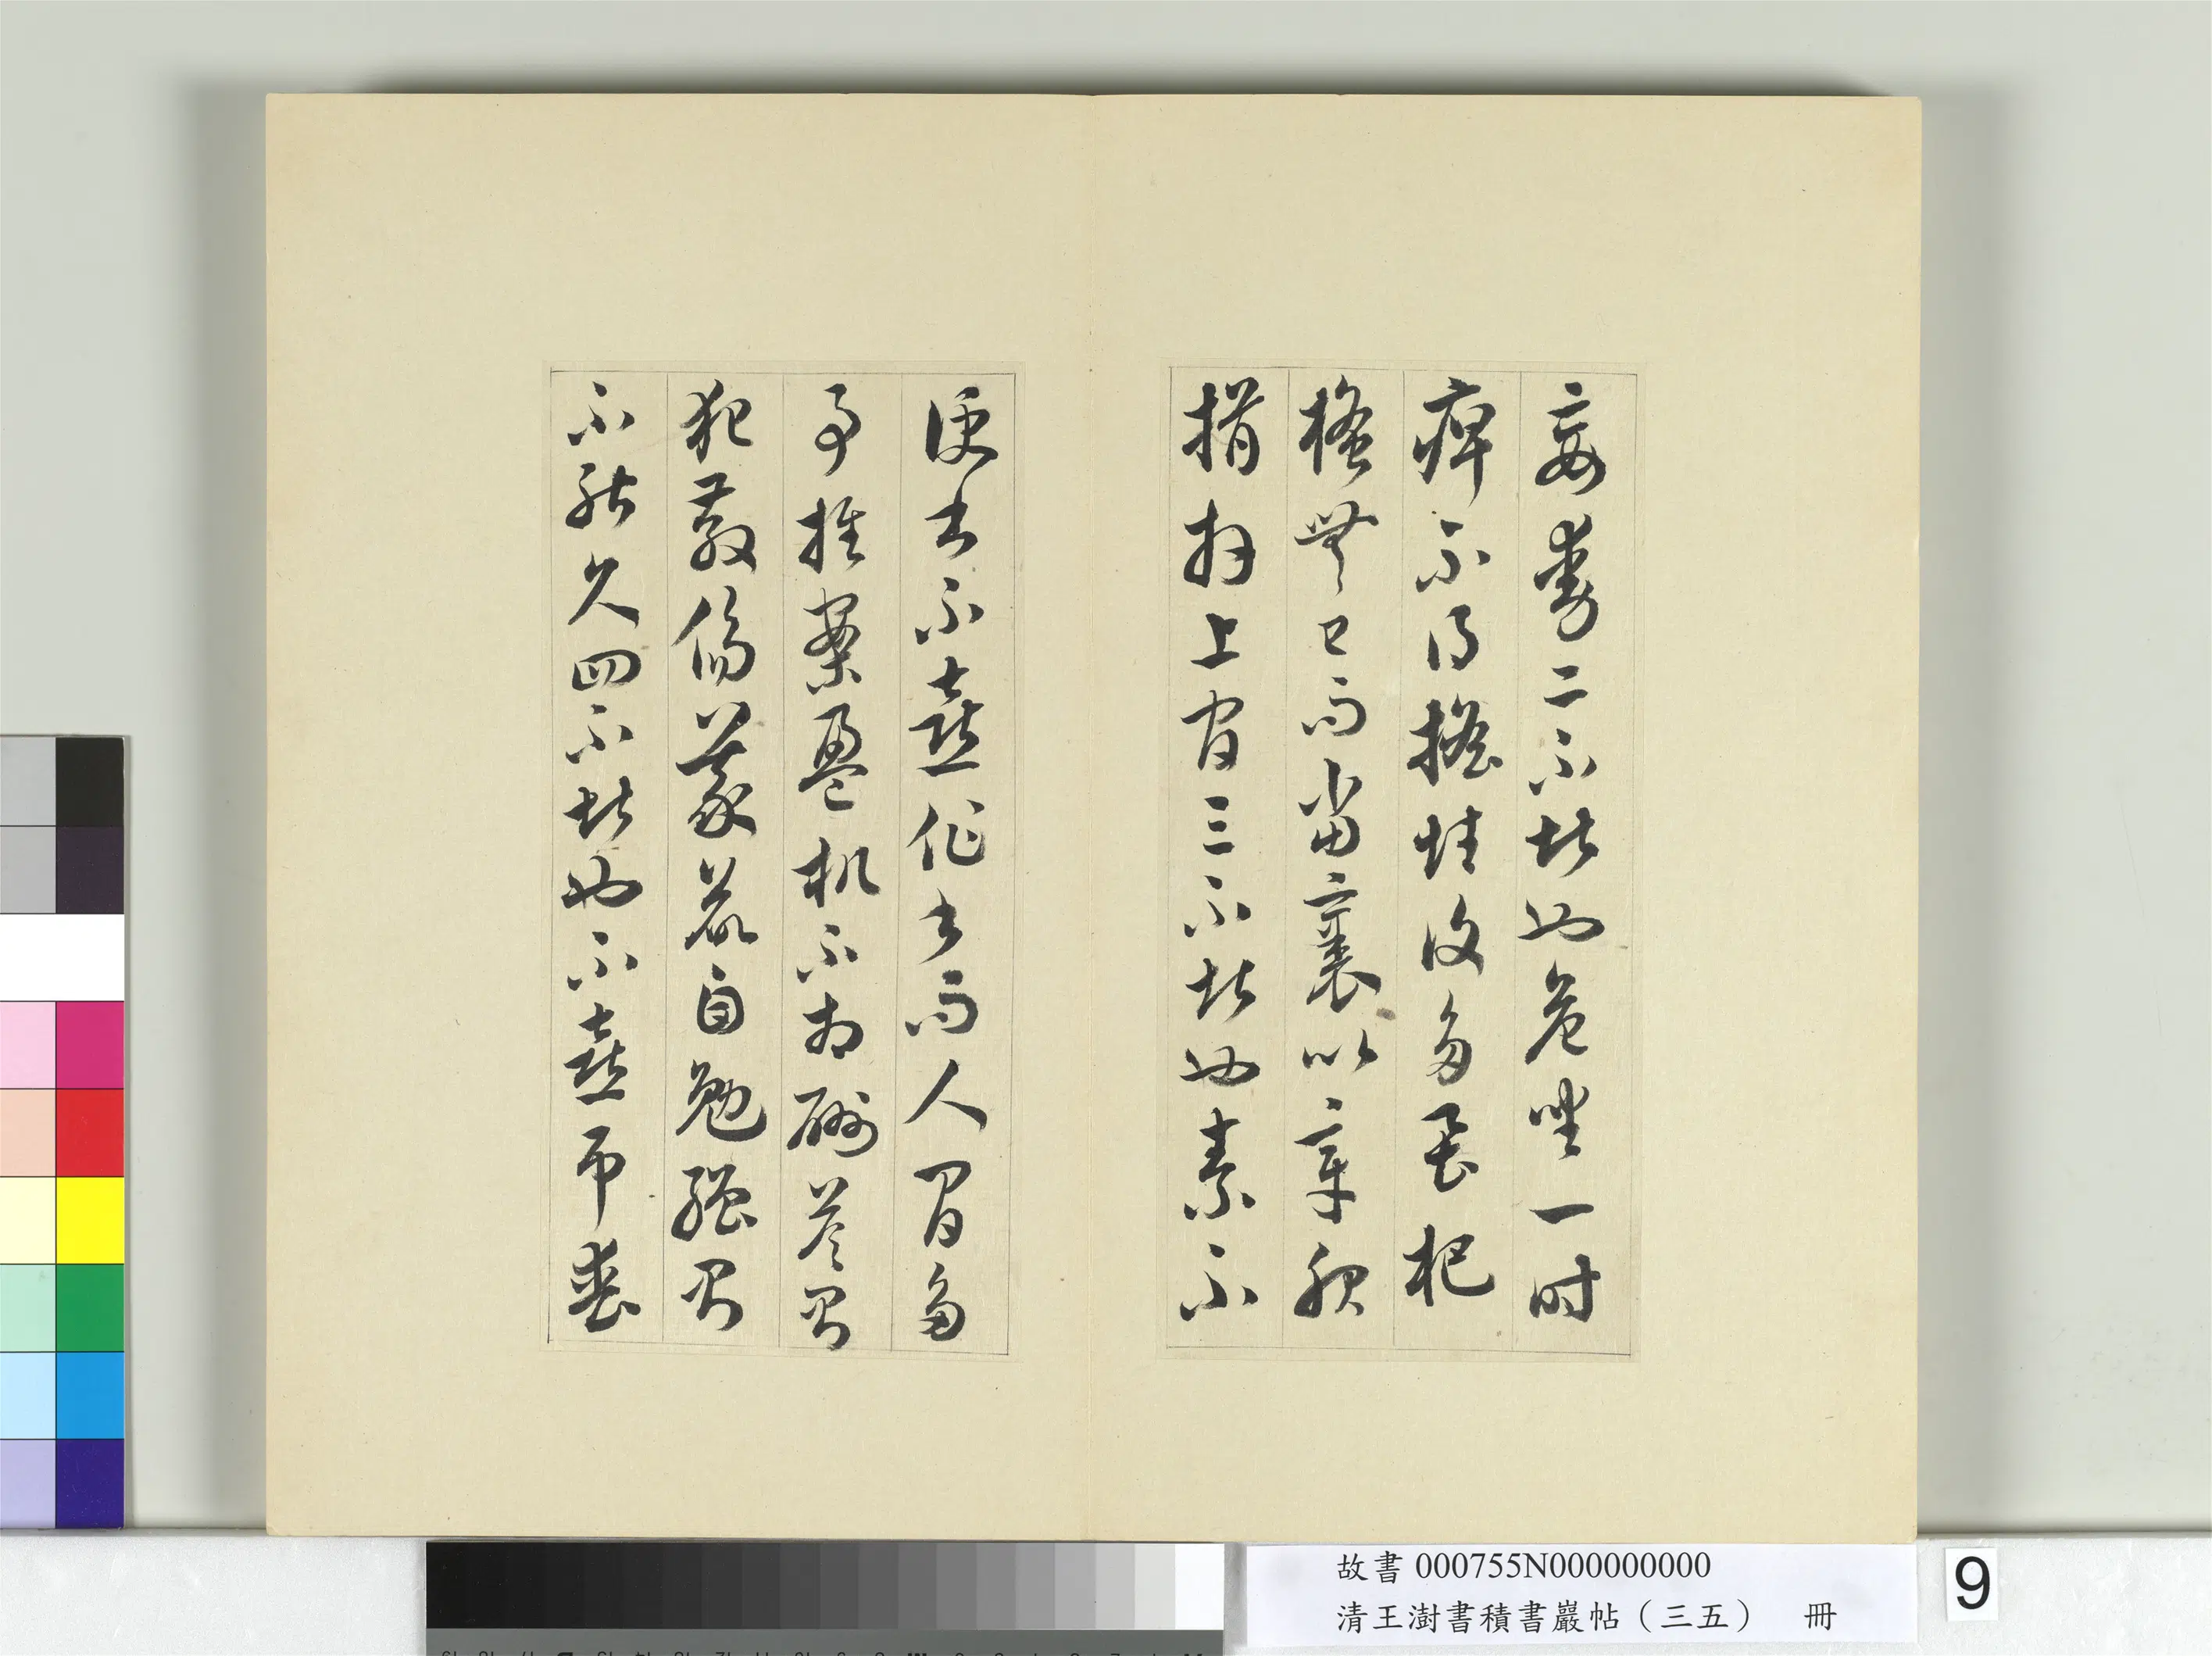 妄動二不堪也危坐一時
痺不得搖性復多虱把
搔無已而當裹以章服
揖拜上官三不堪也素不
便書不喜作書而人間多
事堆案盈机不相酬答則
犯教傷義欲自勉強則
不能久四不堪也不喜弔喪
故書000755N000000000
清王澍書積書巖帖（三五） 冊
9